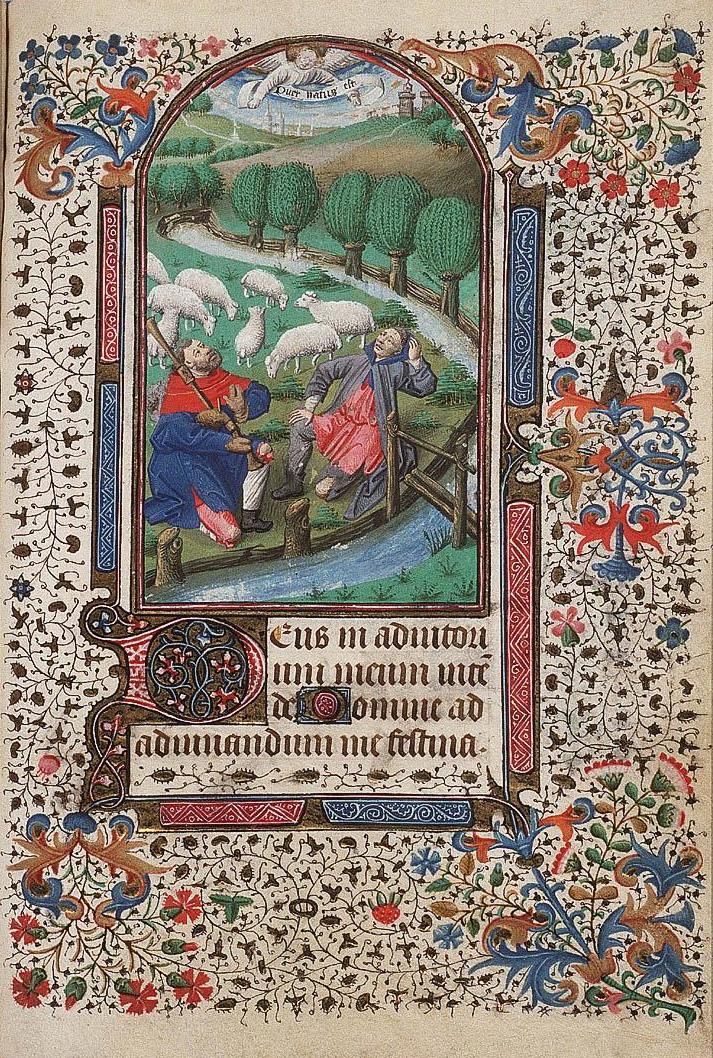 Puer natus est
Deus in adiutori
um meum inte
de Domine ad
adiuuandum me festina.